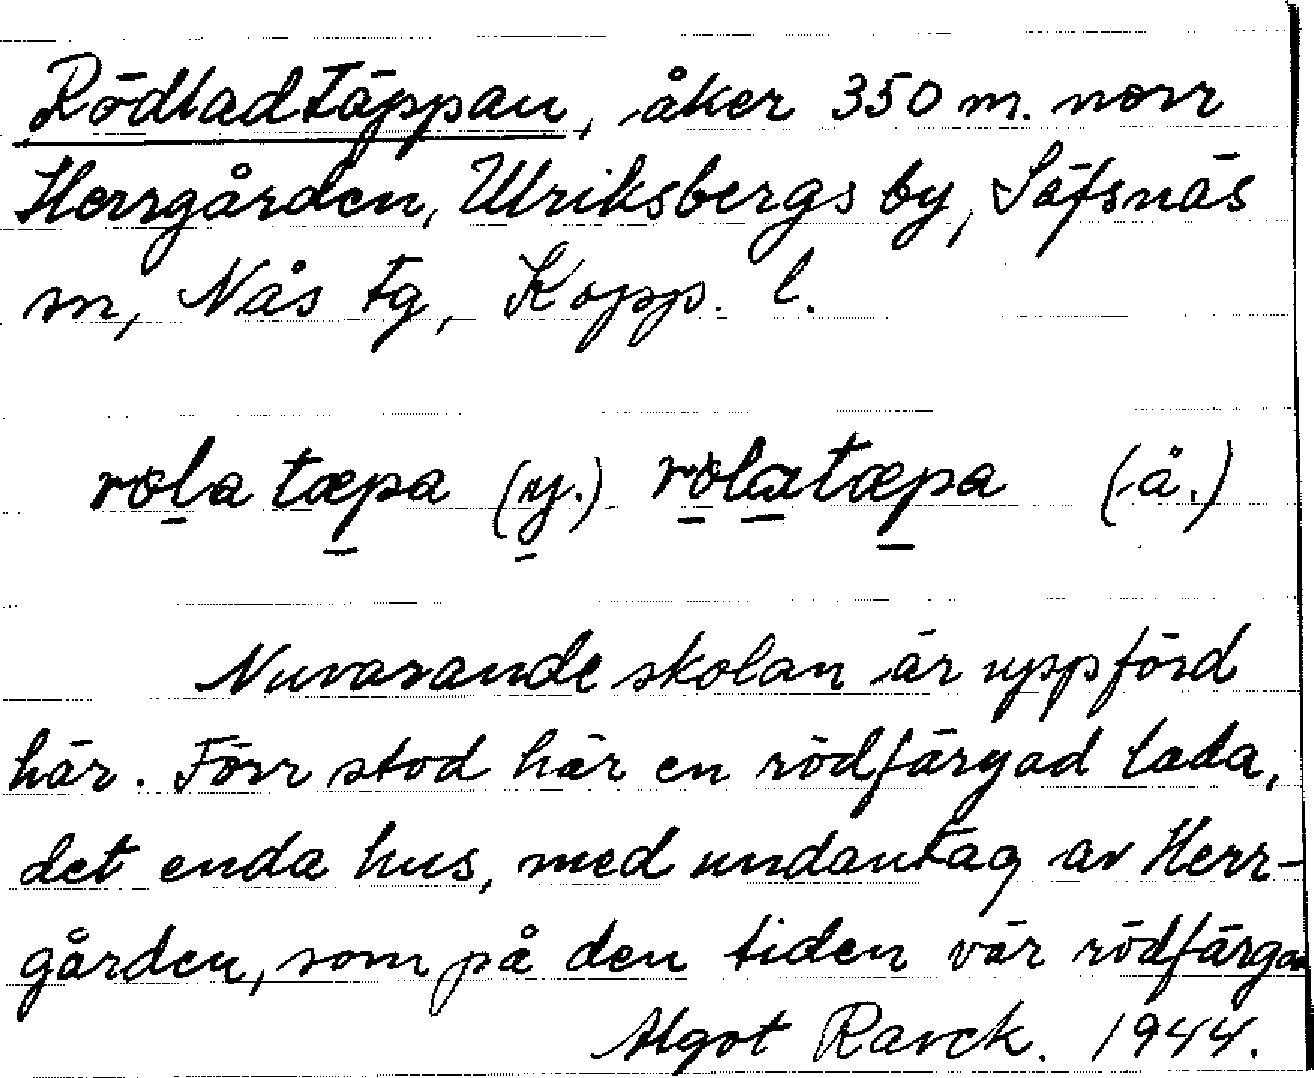 Rödladtäppan, åker 350 m. norr
Herrgården, Ulriksbergs by, Säfsnäs
sn, Nås tg, Kopp. l.
rola tæpa (y.) rolatæpa (å.)
Nuvarande skolan är uppförd
här. Förr stod här en rödfärgad lada,
det enda hus, med undantag av Herr-
gården, som på den tiden var rödfärga
Algot Ravck. 1944.